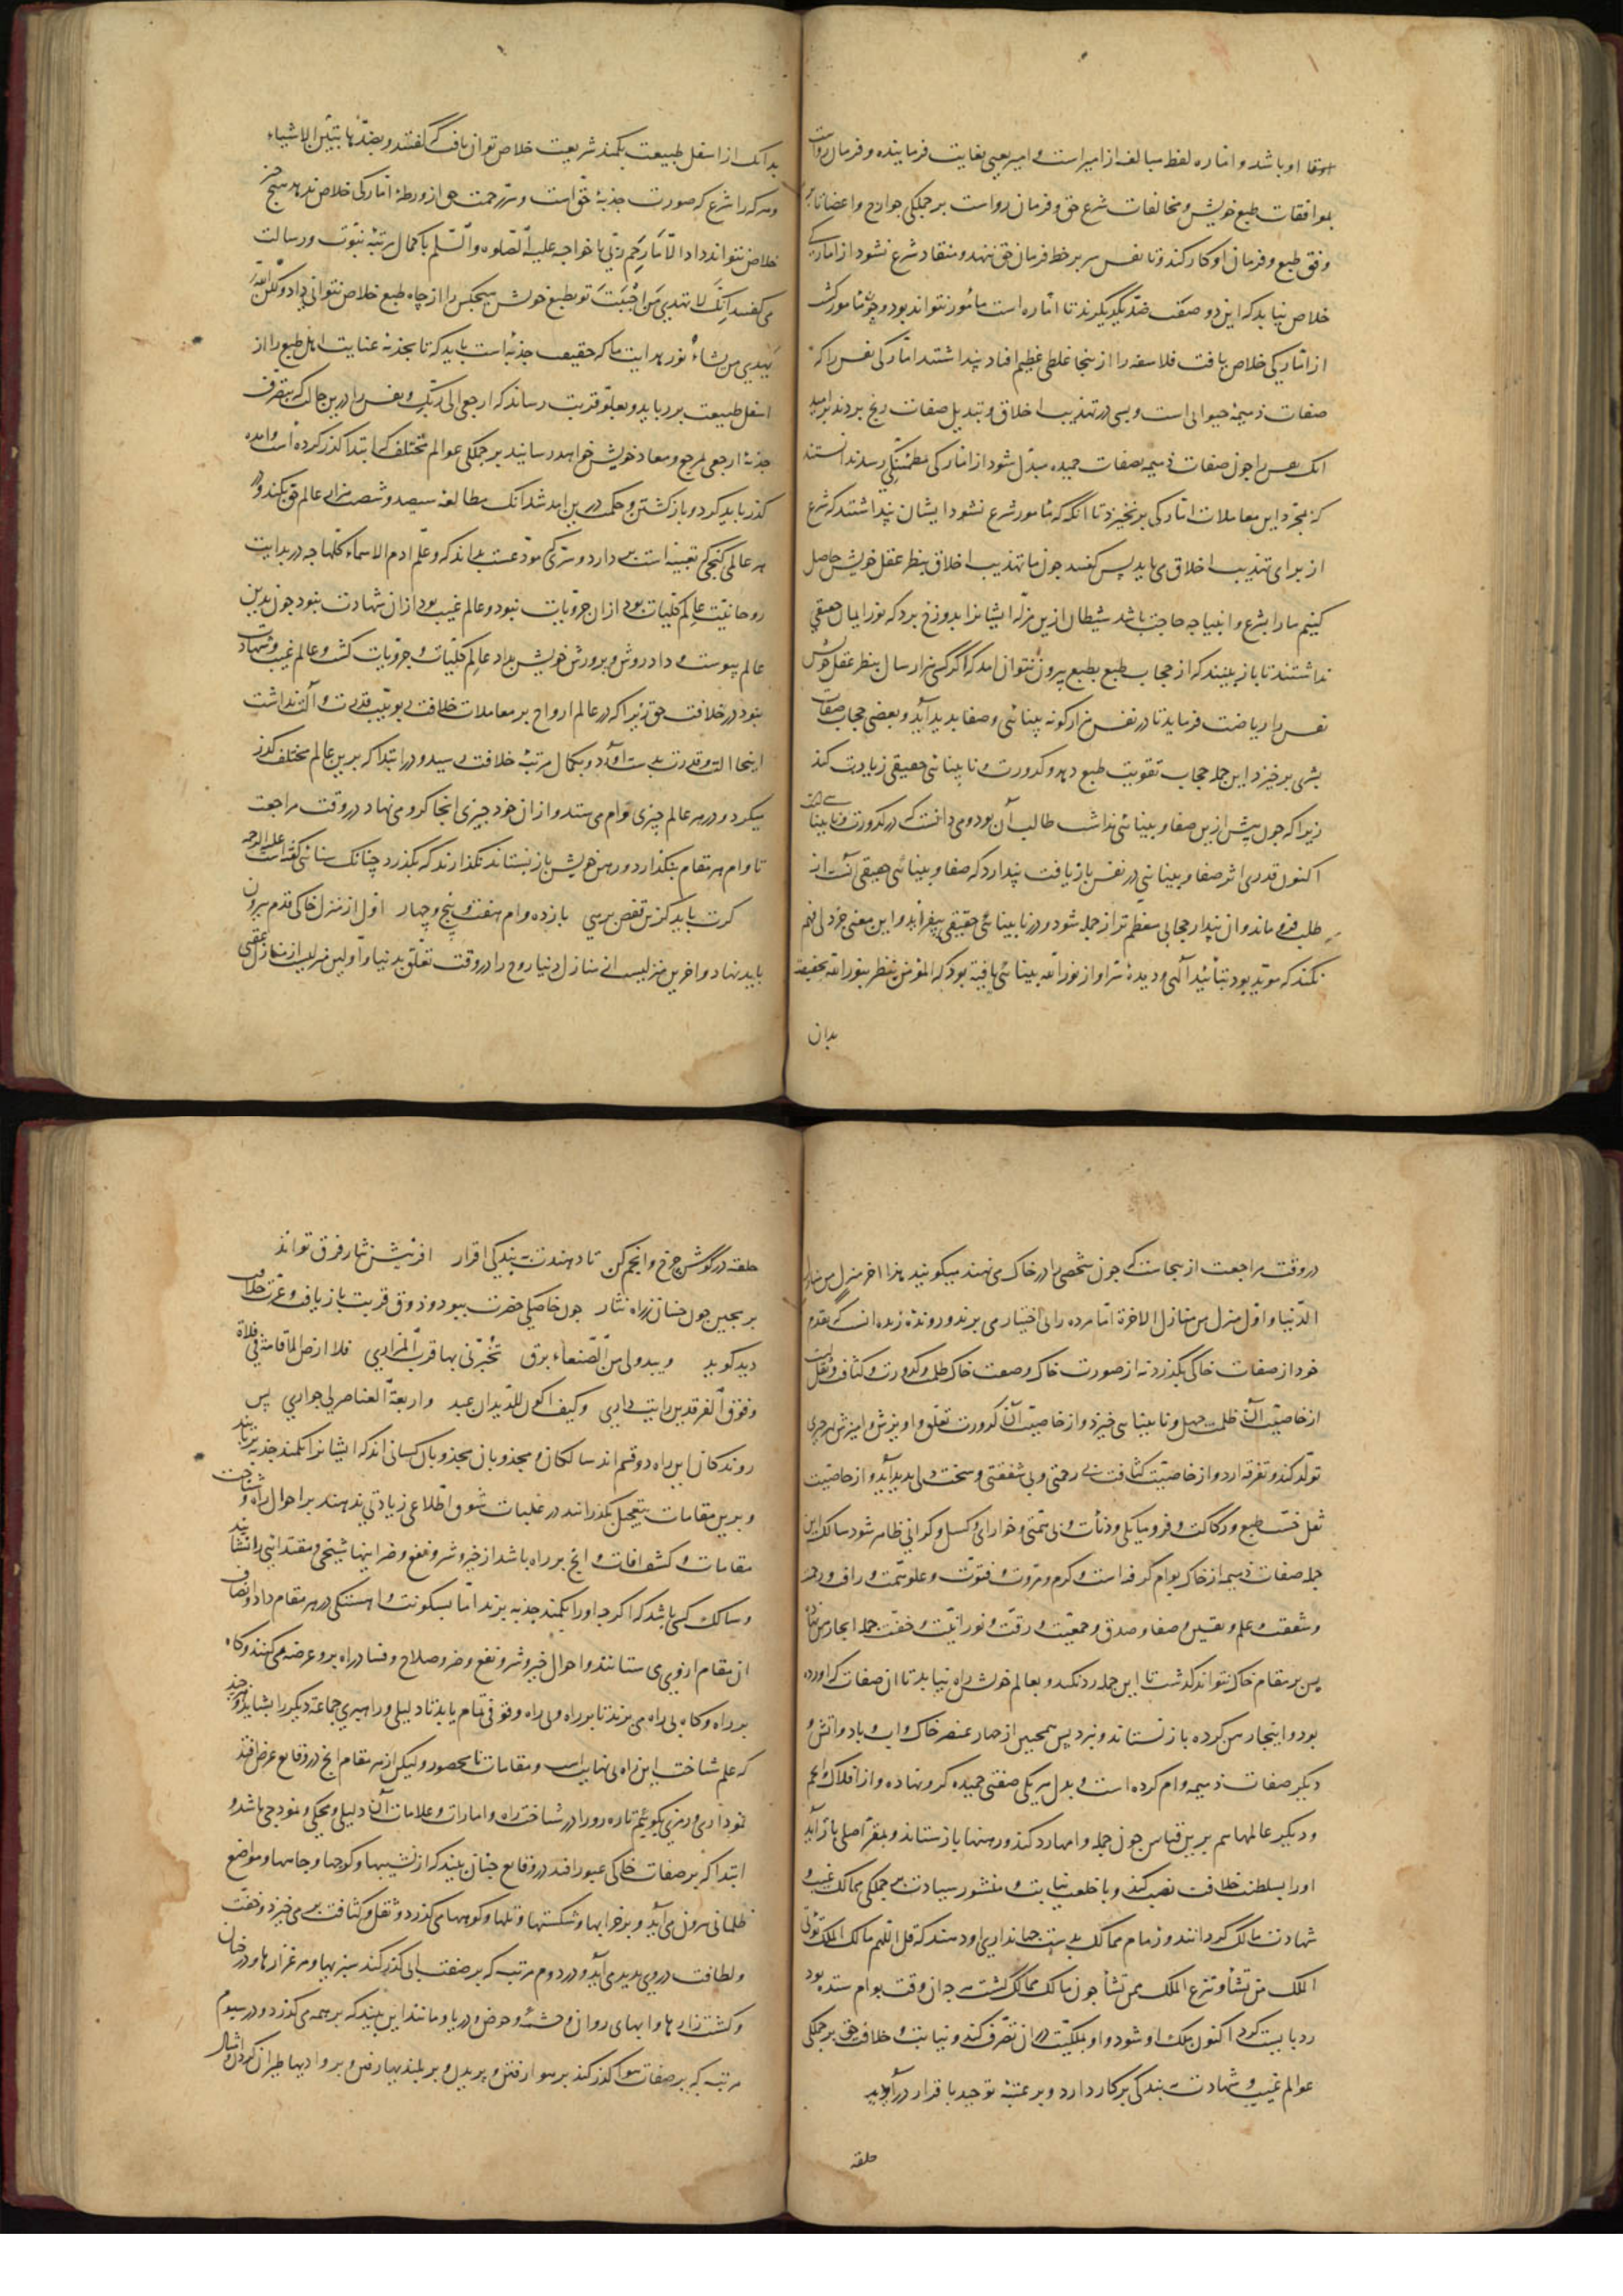 اوقا او باشد و اماره لفظ مبالغه از امیر است و امیر یعنی بغایت فرماینده و فرمان رواست
بموافقات طبع خویش و مخالفات شرع حق و فرمان رواست بر جملکی جوارح و اعضا تا بر
وفق طبع و فرمان او کار کنند و تا نفس سر بر خط فرمان حق ننهد و منقاد شرع نشود از امارکی
خلاص نیابد که این دو صفت ضد یکدیکرند تا اماره است مامور نتواند بود و چون مامور کشت
از امارکی خلاص یافت فلاسفه را از ینجا غلطی عظیم افتاد پنداشتند امارکی نفس را که
صفات ذمیمهٔ حیوانی است و بسی در تهذیب اخلاق و تبدیل صفات رنج بردند بر امید
انک نفس را جون صفات ذمیمه بصفات حمیده مبدل شود از امارکی بمطمئنکی رسد ندانستند
که بمجرد این معاملات امارکی برنخیزد تا انکه که مامور شرع نشود ایشان پنداشتند که شرع
از برای تهذیب اخلاق می باید پس کفتند جون ما تهذیب اخلاق بنظر عقل خویش حاصل
کنیم ما را بشرع و انبیا چه حاجت باشد شیطان ازین مزله ایشانرا بدوزخ برد که نور ایمان حقیقی
نداشتند تا باز بینند که از حجاب طبع بطبع بیرون نتوان امد که اکر کسی هزار سال بنظر عقل خویش
نفس را ریاضت فرماید تا در نفس هزار کونه بینائی و صفا بدید آید و بعضی حجاب صفات
بشری برخیزد این جمله حجاب تقویت طبع دهد و کدورت و نابینائی حقیقی زیادت کند
زیرا که جون پیش ازین صفا و بینائی نداشت طالب آن بود و می دانست که در کدورت و نابینا
اکنون قدری اثر صفا و بینائی در نفس باز یافت پندارد که صفا و بینائی حقیقی آنست از
طلب فرو ماند و ان پندار حجابی معظم تر از جمله شود و در نابینائی حقیقی بیفزاید و این معنی خرد دلی فهم
نکند که موید بود بتائید الهی و دیدهٔ سر او از نور الله بینائی یافته بود که المؤمن ینظر بنور الله بحقیقت
بدان
بدانک از اسفل طبیعت بکمند شریعت خلاص توان یافت که گفتند و بضدها تتبین الاشیاء
و هر که را شرع که صورت جذبهٔ حق است و سر رحمت حق از ورطهٔ امارکی خلاص ندهد هیچ چیز
خلاص نتواند داد الا ما رحم ربی با خواجه علیه الصلوه والسلم با کمال مرتبهٔ نبوت و رسالت
می گفتند انک لا تهدی من احببت تو بطبع خویش هیجکس را از چاه طبع خلاص نتوانی داد ولکن الله
یهدی من یشاء نور هدایت ما که حقیقت جذبه است باید که تا بجذبهٔ عنایت اهل طبع را از
اسفل طبیعت برباید و بعلو قربت رساند که ارجعی الی ربک و نفس را درین حال که بتصرف
جذبهٔ ارجعی بمرجع و معاد خویش خواهد رسانید بر جملکی عوالم مختلف که ابتدا کذر کرده است و امده
کذر باید کرد و باز کشتن و حکمت درین امد شد انک مطالعهٔ سیصد و شصت هزار عالم ... بکند و از
هر عالمی کنجی که تعبیه است بر دارد و سری که مودعست بداند که و علم ادم الاسماء کلها چه در بدایت
روحانیت عالم کلیات بود از ان جزویات نبود و عالم غیب بود از ان شهادت نبود جون بدین
عالم پیوست و داد روش و پرورش خویش بداد عالم کلیات و جزویات کشت و عالم غیب و شهادت
بنود در خلافت حق زیرا که در عالم ارواح بر معاملات خلافت ربوبیت قدرت و الت نداشت
اینجا الت و قدرت بدست آورد و بکمال مرتبهٔ خلافت رسید و در ابتدا که برین عالم مختلف کذر
میکرد و در هر عالم چیزی وام می ستد و از ان خود چیزی انجا کرو می نهاد در وقت مراجعت
تا وام هر مقام بنکذارد و رهن خویش باز نستاند نکذارند که بکذرد چنانک سنائی کفته است علیه الرحمه
کرت باید کزین قفص برهی باز ده وام هفت و پنج و چهار اول از منزل خاکی قدم بیرون
باید نهاد و اخرین منزلیست از منازل دنیا روح را در وقت تعلق بدنیا و اولین منزلیست از منازل عقبی
در وقت مراجعت از ینجاست که جون شخصی را در خاک می نهند میکویند هذا اخر منزل من منازل
الدنیا و اول منزل من منازل الاخرة اما مرده را بی اختیار می برند و رونده زنده انست که بقدم
خود از صفات خاکی بکذرد نه از صورت خاک و صفت خاک ظلمت و کدورت و کثافت و ثقل است
از خاصیت آن ظلمت جهل و نابینائی خیزد و از خاصیت آن کدورت تعلق و اویزش و امیزش بهر چیزی
تولد کند و تفرقه ارد و از خاصیت کثافت بی رحمتی و بی شفقتی و سخت دلی بدید آید و از خاصیت
ثقل خست طبع و رکاکت و فرومایکی و دنائت و بی همتی و خواری و کسل و کرانی ظاهر شود سالک این
جمله صفات ذمیمه از خاک بوام کرفته است و کرم و مروت و فتوت و علو همت و رافت و رحمت
و شفقت و علم و یقین و صفا و صدق و جمعیت و رقت و نورانیت و خفت جمله اینجا رهن نهاده
پس بر مقام خاک نتواند کذشت تا این جمله رد نکند و بعالم خویش راه نیابد تا ان صفات که اورده
بود و اینجا رهن کرده باز نستاند و نبرد پس همچنین از چهار عنصر خاک و اب و باد و اتش و
دیکر صفات ذمیمه وام کرده است و بدل هر یکی صفتی حمیده کرو نهاده و از افلاک و انجم
و دیکر عالمها هم برین قیاس جون جمله وامها رد کند و رهنها باز ستاند و بمقر اصلی باز آید
او را بسلطنت خلافت نصب کنند و با خلعت نیابت و منشور سیادت بر جملکی ممالک غیب و
شهادت مالک کردانند و زمام ممالک بدست جهانداری او دهند که قل اللهم مالک الملک تؤتی
الملک من تشأ و تنزع الملک ممن تشأ جون مالک ممالک کشت هر چه ان وقت بوام ستده بود
رد بایست کرد اکنون ملک او شود و او بملکیت در ان تصرف کند و نیابت و خلافت حق بر جملکی
عوالم غیب و شهادت بندکی بر کار دارد و بر عتبهٔ توحید باقرار در آورید
حلقه
حلقه در گوش چرخ و انجم کن تا دهندت ببندکی اقرار افرینش نثار فرق تو اند
بر مچین جون خسان ز راه نثار جون خاصکی حضرت ببود و ذوق قربت باز یافت و عزت خلافت
دید کوید ویبدو لی من الصنعاء برق تخبرنی بها قرب المزار فلا ارض الاقامة فی فلاة
و فوق الفرقدین رایت داری وکیف اکون للدیدان عبد و اربعة العناصر لی جواری پس
روندکان این راه دو قسم اند سالکان و مجذوبان مجذوبان کسانی اند که ایشانرا بکمند جذبه بربایند
و برین مقامات بتعجیل بکذرانند در غلبات شوق اطلاعی زیادتی ندهند بر احوال راه و شناخت
مقامات و کشف افات و انج بر راه باشد از خیر و شر و نفع و ضر اینها شیخی و مقتدائی را نشایند
و سالک کسی باشد که اکرچه او را بکمند جذبه برند اما بسکونت و اهستکی در هر مقام داد و انصاف
ان مقام از وی می ستانند و احوال خیر و شر و نفع و ضر و صلاح و فساد راه برو عرضه می کنند و کاه
بر راه و کاه بی راه می برند تا بر راه و بی راه وقوفی تمام یابد تا دلیلی و راهبری جماعة دیکر را بشاید و هر چند
که علم شناخت این راه بی نهایت است و مقامات نامحصور ولیکن از هر مقام انج در وقایع عرض افتد
نموداری و رمزی بکوئیم تا ره رو را در شناخت راه و امارات و علامات آن دلیلی و محکی و نمودجی باشد و
ابتدا که بر صفات خاکی عبور افتد در وقایع چنان بیند که از نشیبها و کوچها و چاهها و مواضع
ظلمانی بیرون می آید و بر خرابها و شکستها و تلها و کوهها می کذرد و ثقل و کثافت بر می خیزد و خفت
و لطافت در وی بدید می آید و در دوم مرتبه که بر صفت ابی کذر کند سبزیها و مرغزارها و درختان
و کشت زارها و ابهای روان و چشمه و حوض و دریا و مانند این بیند که بر همه می کذرد و در سیوم
مرتبه که بر صفات هوا کذر کند بر هوا رفتن و پریدن و بر بلندیها رفتن و بر وادیها طیران کردن و امثال